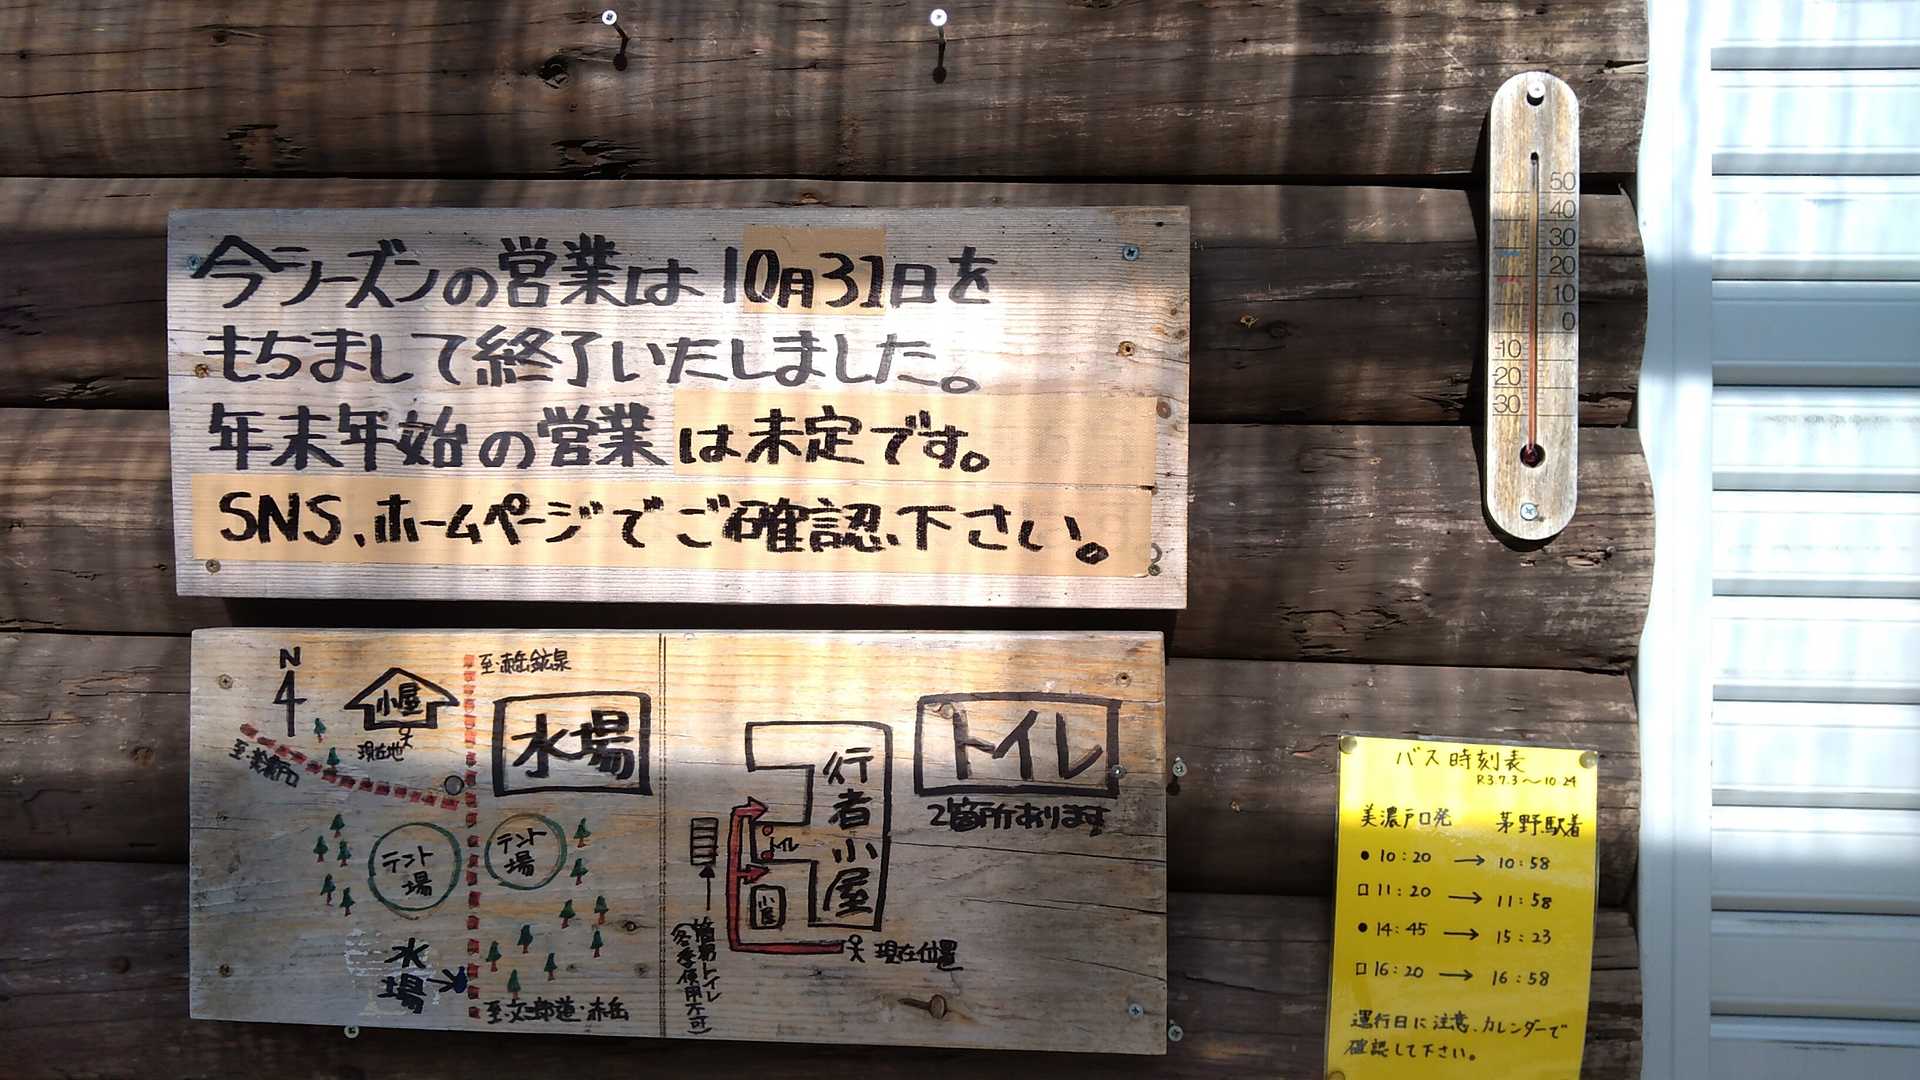 今シーズンの営業は10月31日を
もちまして終了いたしました。
年末年始の営業は未定です。
SNS、ホームページでご確認下さい。
50
40
30
20
10
0
10
20
30
N
至・赤岳鉱泉
小屋
現在地
至・美濃戸口
水場
テント場
テント場
水場
至・文三郎道・赤岳
トイレ
2箇所あります
行者小屋
トイレ
小屋
現在位置
簡易トイレ
(冬季使用不可)
バス時刻表
R3 7.3〜10 24
美濃戸口発 茅野駅着
● 10:20 → 10:58
□ 11:20 → 11:58
● 14:45 → 15:23
□ 16:20 → 16:58
運行日に注意、カレンダーで
確認して下さい。